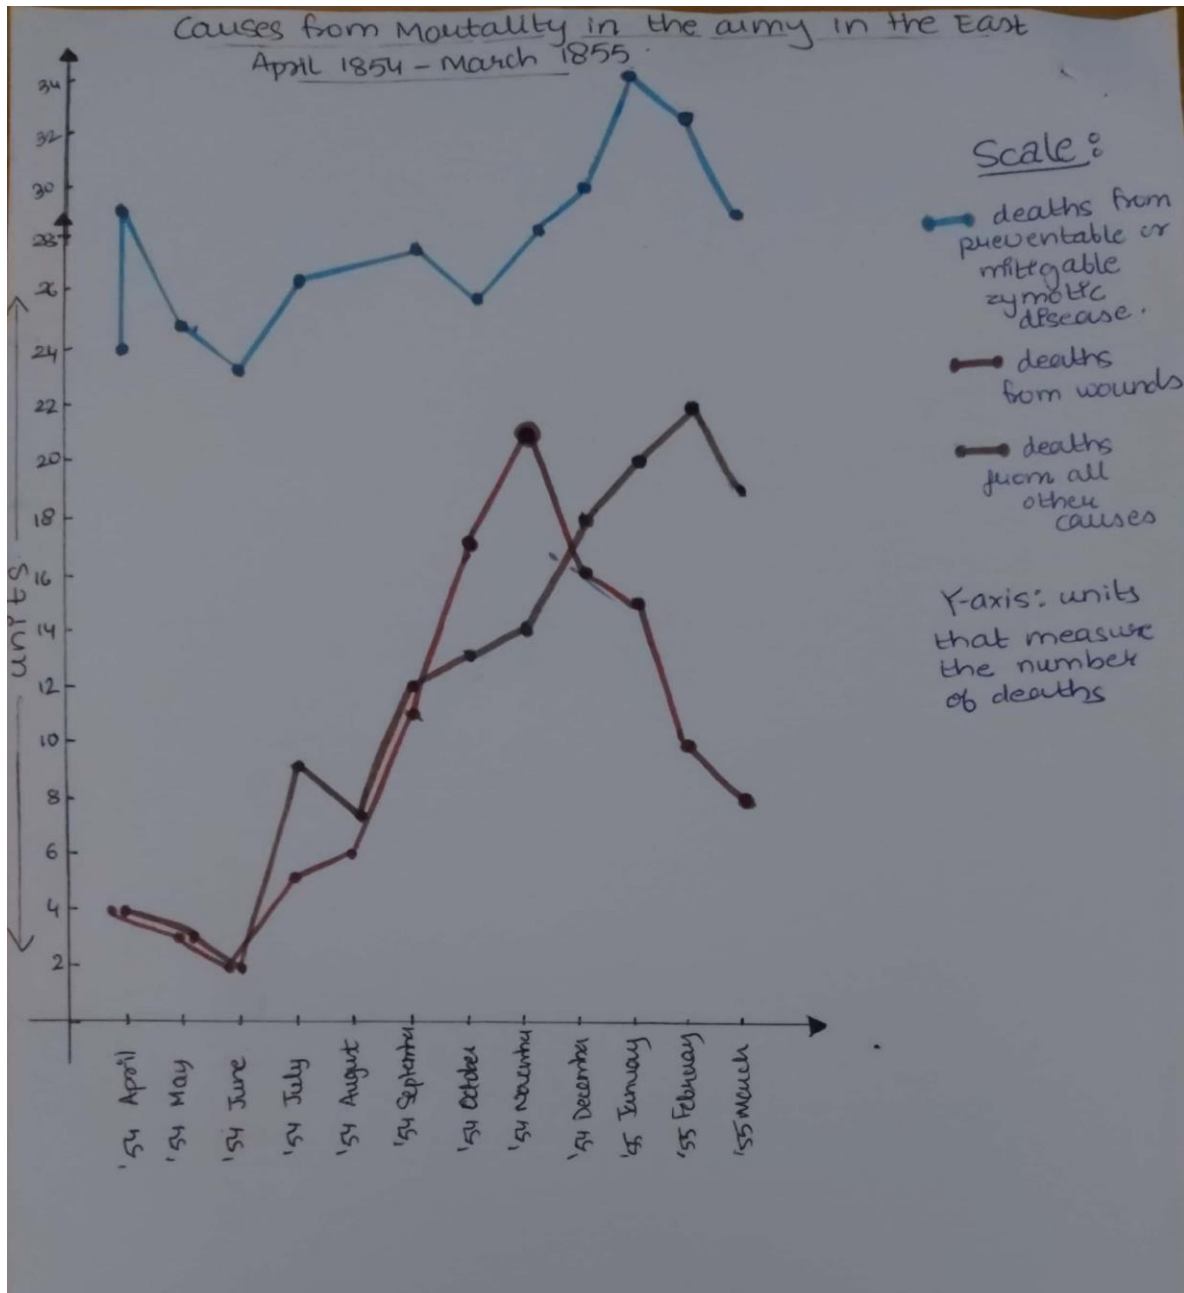 Causes from Mortality in the army in the East
April 1854 - March 1855
34
32
30
28
26
24
22
20
18
16
14
12
10
8
6
4
2
units
'54 April
'54 May
'54 June
'54 July
'54 August
'54 September
'54 October
'54 November
'54 December
'55 January
'55 February
'55 March
Scale:
deaths from
preventable or
mitegable
zymotic
disease.
deaths
from wounds
deaths
from all
other
causes
Y-axis: units
that measure
the number
of deaths